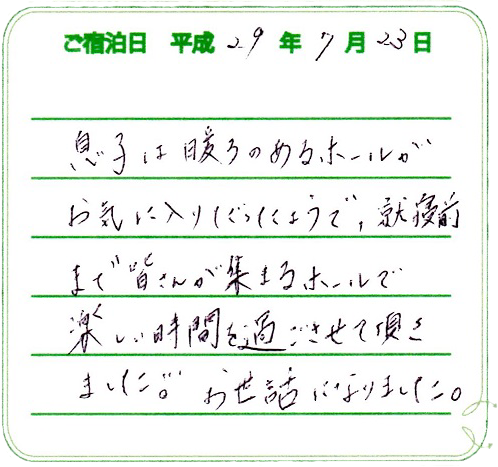 ご宿泊日 平成 29 年 7 月 23 日
息子は暖ろのあるホールが
お気に入りだったようで、就寝前
まで皆さんが集まるホールで
楽しい時間を過ごさせて頂き
ました。お世話になりました。